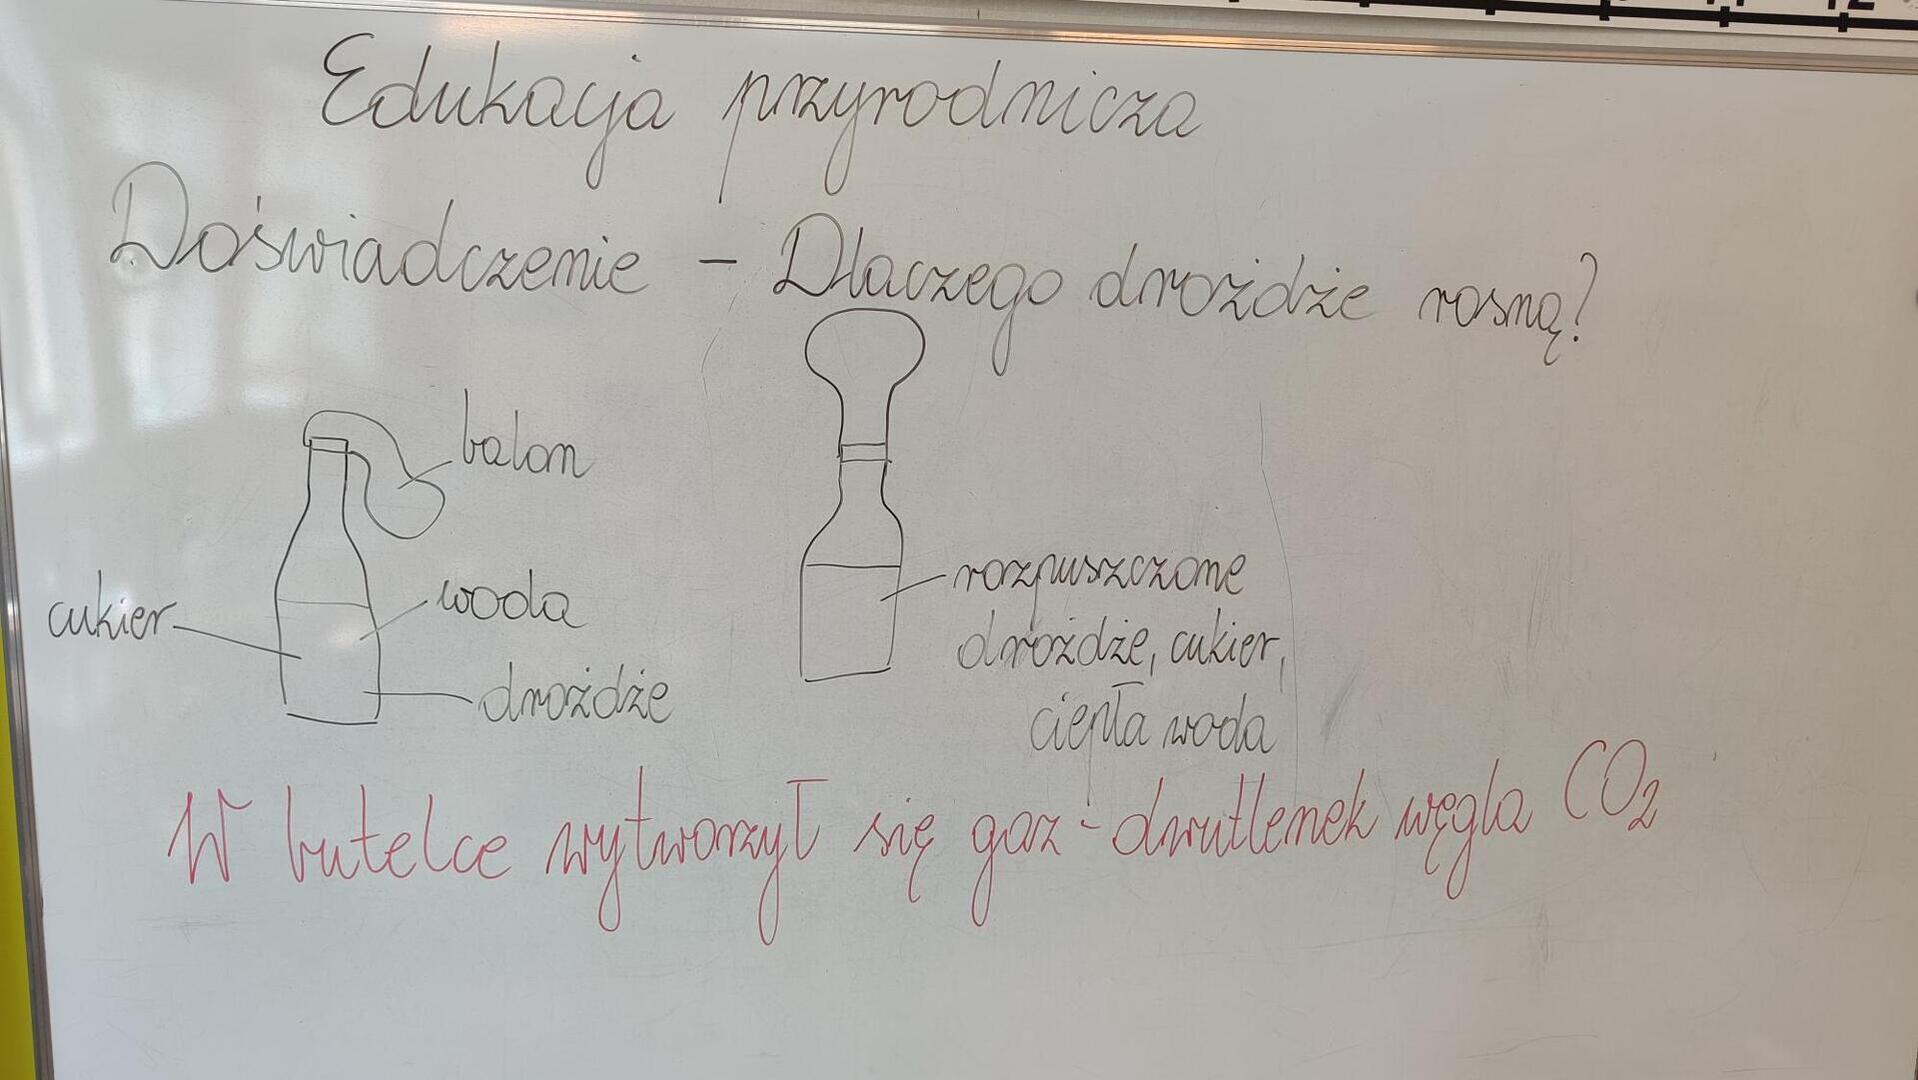 Edukacja przyrodnicza
Doświadczenie - Dlaczego drożdże rosną?
balon
cukier
woda
drożdże
rozpuszczone
drożdże, cukier,
ciepła woda
W butelce wytworzył się gaz - dwutlenek węgla CO₂